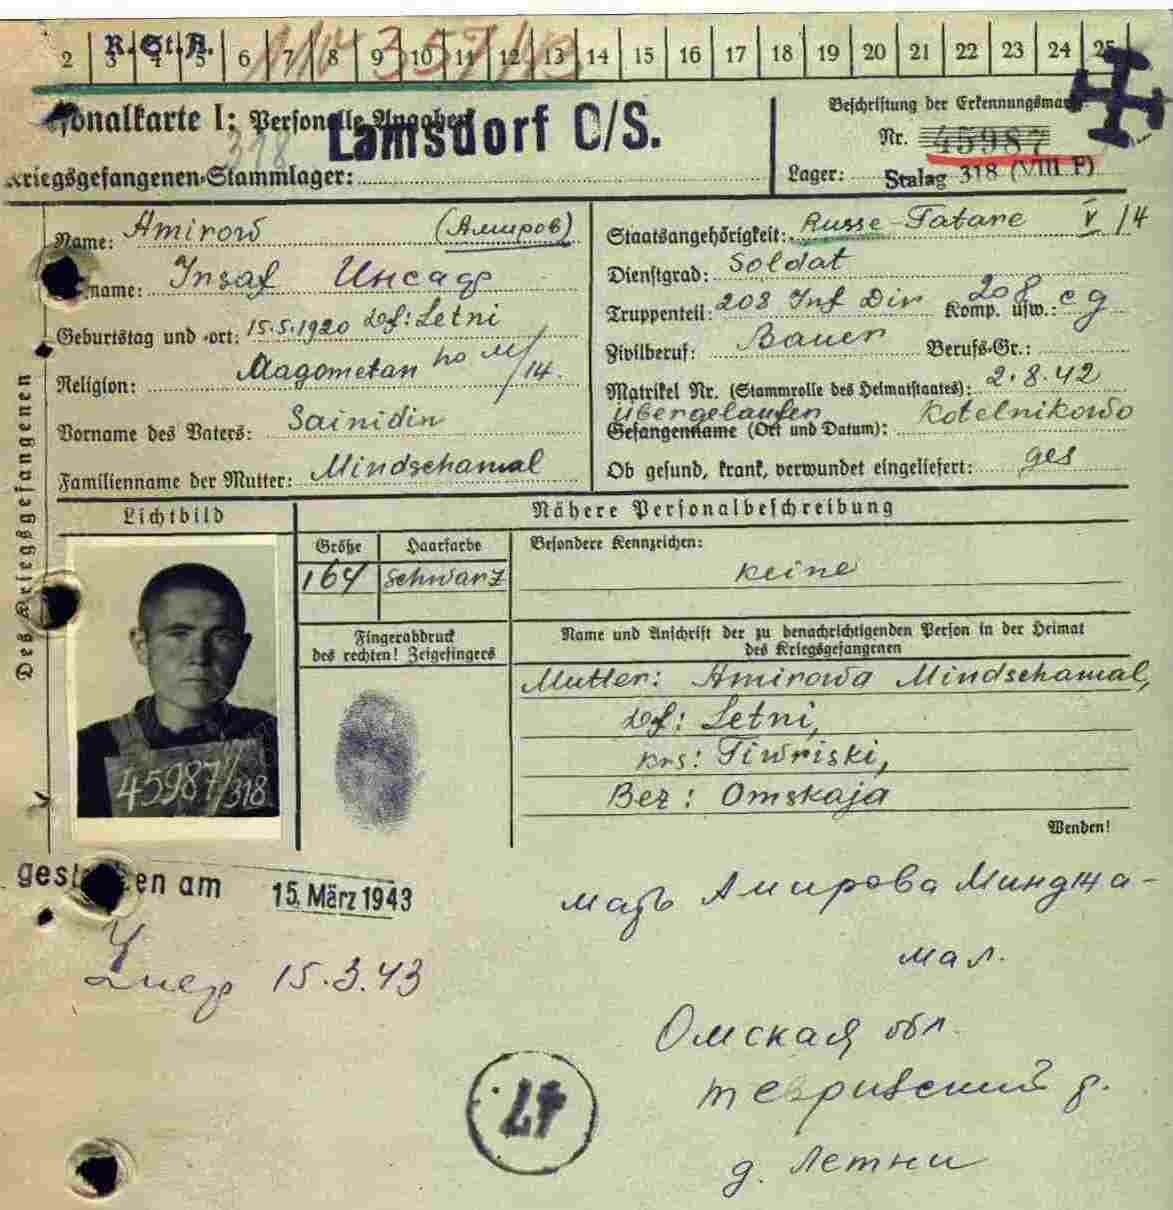 2 3 4 5 6 7 8 9 10 11 12 13 14 15 16 17 18 19 20 21 22 23 24 25
R. St. A.
onalkarte I: Personelle Angaben
Lamsdorf O/S.
318
Kriegsgefangenen-Stammlager:
Beschriftung der Erkennungsmarke
Nr. 45987
Lager: Stalag 318 (VIII F)
Des Kriegsgefangenen
Name: Amirow (Амиров)
name: Insaf Инсаф
Geburtstag und -ort: 15.5.1920 df: Letni
Religion: Magometan
Vorname des Vaters: Sainidin
Familienname der Mutter: Mindschamal
Staatsangehörigkeit: Russe-Tatare V/4
Dienstgrad: Soldat
Truppenteil: 208 Inf Div Komp. usw.: 208
Zivilberuf: Bauer Berufs-Gr.:
Matrikel Nr. (Stammrolle des Heimatstaates): 2.8.42
übergelaufen
Gefangenname (Ort und Datum): Kotelnikowo
Ob gesund, krank, verwundet eingeliefert: ges
Lichtbild
Nähere Personalbeschreibung
Größe
Haarfarbe
164
schwarz
Besondere Kennzeichen:
keine
Fingerabdruck
des rechten! Zeigefingers
Name und Anschrift der zu benachrichtigenden Person in der Heimat
des Kriegsgefangenen
Mutter: Amirowa Mindschamal,
df: Letni,
krs: Tiwriski,
Bez: Omskaja
45987/318
Wenden!
gest en am 15. März 1943
Умер 15.3.43
мать Амирова Минджа-
мал.
Омская обл.
тевризский р.
д. Летни
47